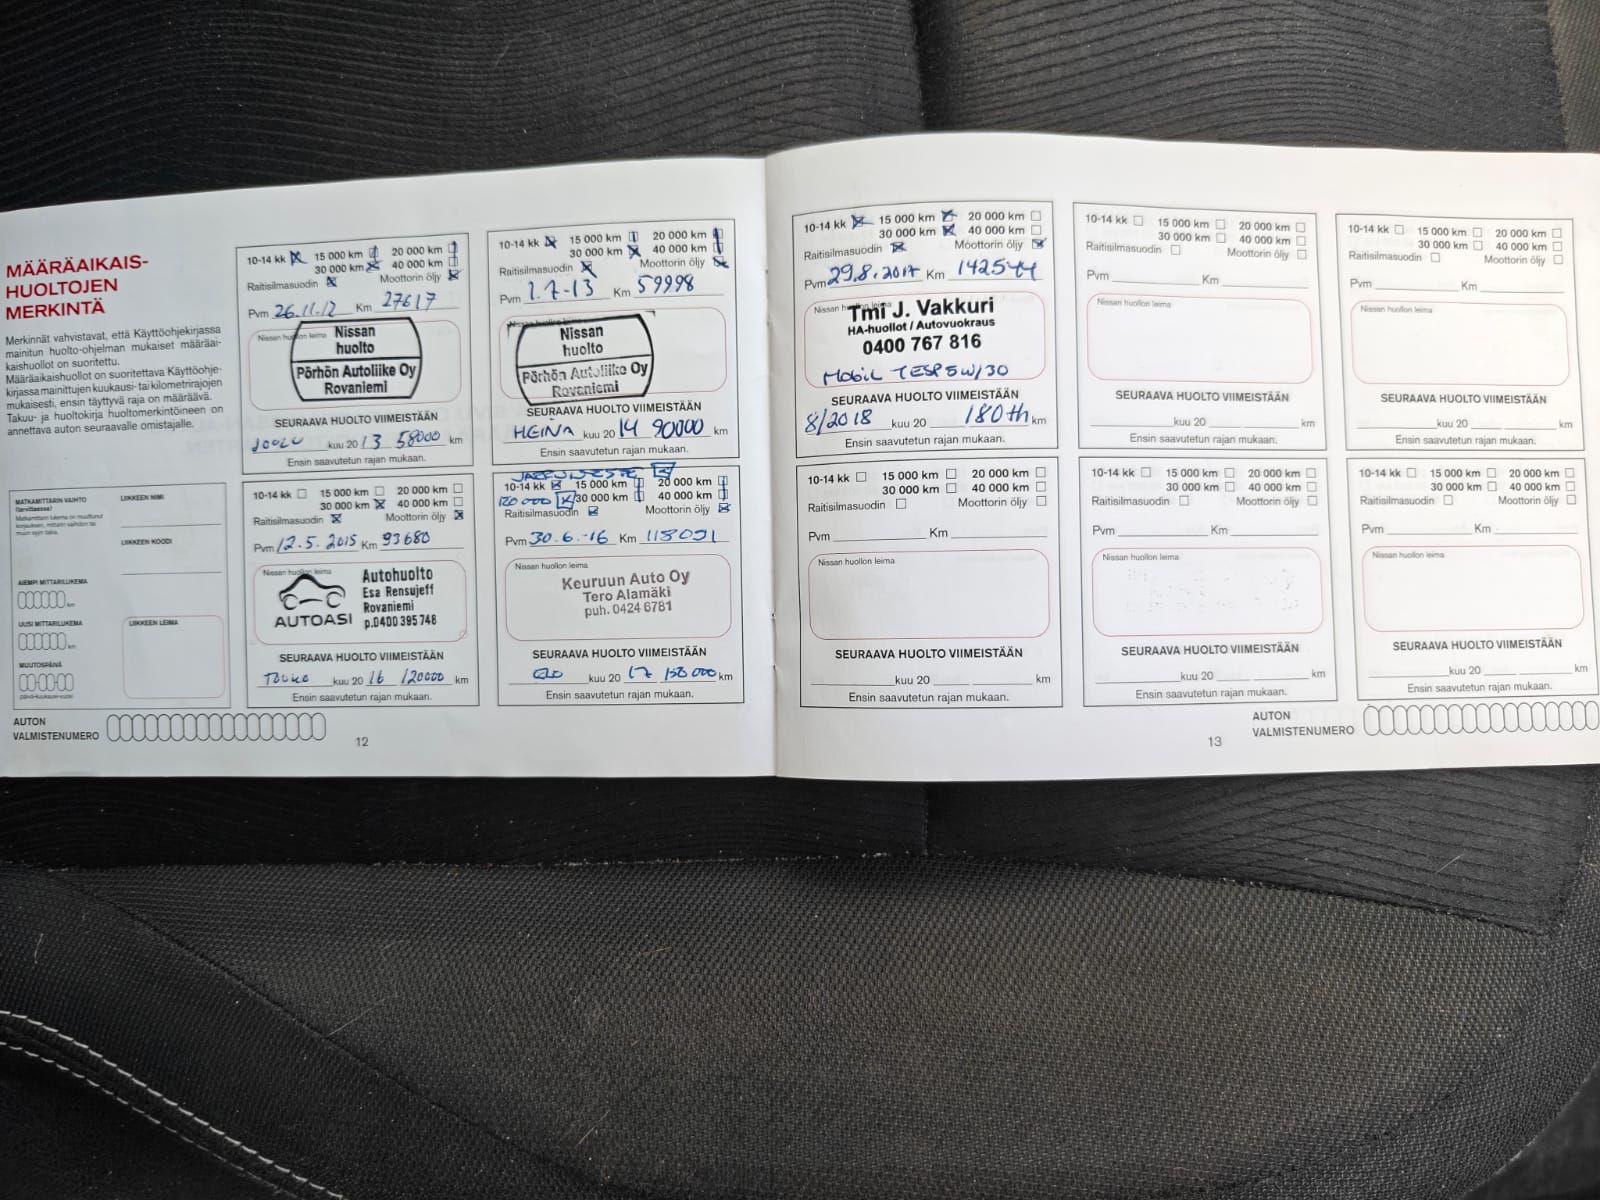 MÄÄRÄAIKAIS-
HUOLTOJEN
MERKINTÄ
Merkinnät vahvistavat, että Käyttöohjekirjassa
mainitun huolto-ohjelman mukaiset määräai-
kaishuollot on suoritettu.
Määräaikaishuollot on suoritettava Käyttöohje-
kirjassa mainittujen kuukausi- tai kilometrirajojen
mukaisesti, ensin täyttyvä raja on määräävä.
Takuu- ja huoltokirja huoltomerkintöineen on
annettava auton seuraavalle omistajalle.
MATKAMITTARIN VAIHTO
(tarvittaessa)
LIIKKEEN NIMI
LIIKKEEN KOODI
AIEMPI MITTARILUKEMA
km
UUSI MITTARILUKEMA
km
MUUTOSPÄIVÄ
LIIKKEEN LEIMA
AUTON
VALMISTENUMERO
10-14 kk 15 000 km 20 000 km
30 000 km 40 000 km
Raitisilmasuodin Moottorin öljy
Pvm 26.11.12 Km 27617
Nissan huollon leima
Nissan
huolto
Pörhön Autoliike Oy
Rovaniemi
SEURAAVA HUOLTO VIIMEISTÄÄN
JOULU kuu 20 13 58000 km
Ensin saavutetun rajan mukaan.
10-14 kk 15 000 km 20 000 km
30 000 km 40 000 km
Raitisilmasuodin Moottorin öljy
Pvm 1.7-13 Km 59998
Nissan huollon leima
Nissan
huolto
Pörhön Autoliike Oy
Rovaniemi
SEURAAVA HUOLTO VIIMEISTÄÄN
HEINÄ kuu 20 14 90000 km
Ensin saavutetun rajan mukaan.
10-14 kk 15 000 km 20 000 km
30 000 km 40 000 km
Raitisilmasuodin Moottorin öljy
Pvm 12.5.2015 Km 93680
Nissan huollon leima
AUTOASI
Autohuolto
Esa Rensujeff
Rovaniemi
p.0400 395 748
SEURAAVA HUOLTO VIIMEISTÄÄN
TOUKO kuu 20 16 120000 km
Ensin saavutetun rajan mukaan.
JARRUNESTE
10-14 kk 15 000 km 20 000 km
120 000 30 000 km 40 000 km
Raitisilmasuodin Moottorin öljy
Pvm 30.6.-16 Km 118091
Nissan huollon leima
Keuruun Auto Oy
Tero Alamäki
puh. 0424 6781
SEURAAVA HUOLTO VIIMEISTÄÄN
kuu 20 17 150 000 km
Ensin saavutetun rajan mukaan.
12
10-14 kk 15 000 km 20 000 km
30 000 km 40 000 km
Raitisilmasuodin Moottorin öljy
Pvm 29.8.2017 Km 142544
Nissan huollon leima
Tmi J. Vakkuri
HA-huollot / Autovuokraus
0400 767 816
MOBIL 1 ESP 5W/30
SEURAAVA HUOLTO VIIMEISTÄÄN
8/2018 180th km
Ensin saavutetun rajan mukaan.
10-14 kk 15 000 km 20 000 km
30 000 km 40 000 km
Raitisilmasuodin Moottorin öljy
Pvm Km
Nissan huollon leima
SEURAAVA HUOLTO VIIMEISTÄÄN
kuu 20 km
Ensin saavutetun rajan mukaan.
10-14 kk 15 000 km 20 000 km
30 000 km 40 000 km
Raitisilmasuodin Moottorin öljy
Pvm Km
Nissan huollon leima
SEURAAVA HUOLTO VIIMEISTÄÄN
kuu 20 km
Ensin saavutetun rajan mukaan.
10-14 kk 15 000 km 20 000 km
30 000 km 40 000 km
Raitisilmasuodin Moottorin öljy
Pvm Km
Nissan huollon leima
SEURAAVA HUOLTO VIIMEISTÄÄN
kuu 20 km
Ensin saavutetun rajan mukaan.
10-14 kk 15 000 km 20 000 km
30 000 km 40 000 km
Raitisilmasuodin Moottorin öljy
Pvm Km
Nissan huollon leima
SEURAAVA HUOLTO VIIMEISTÄÄN
kuu 20 km
Ensin saavutetun rajan mukaan.
10-14 kk 15 000 km 20 000 km
30 000 km 40 000 km
Raitisilmasuodin Moottorin öljy
Pvm Km
Nissan huollon leima
SEURAAVA HUOLTO VIIMEISTÄÄN
kuu 20 km
Ensin saavutetun rajan mukaan.
13
AUTON
VALMISTENUMERO